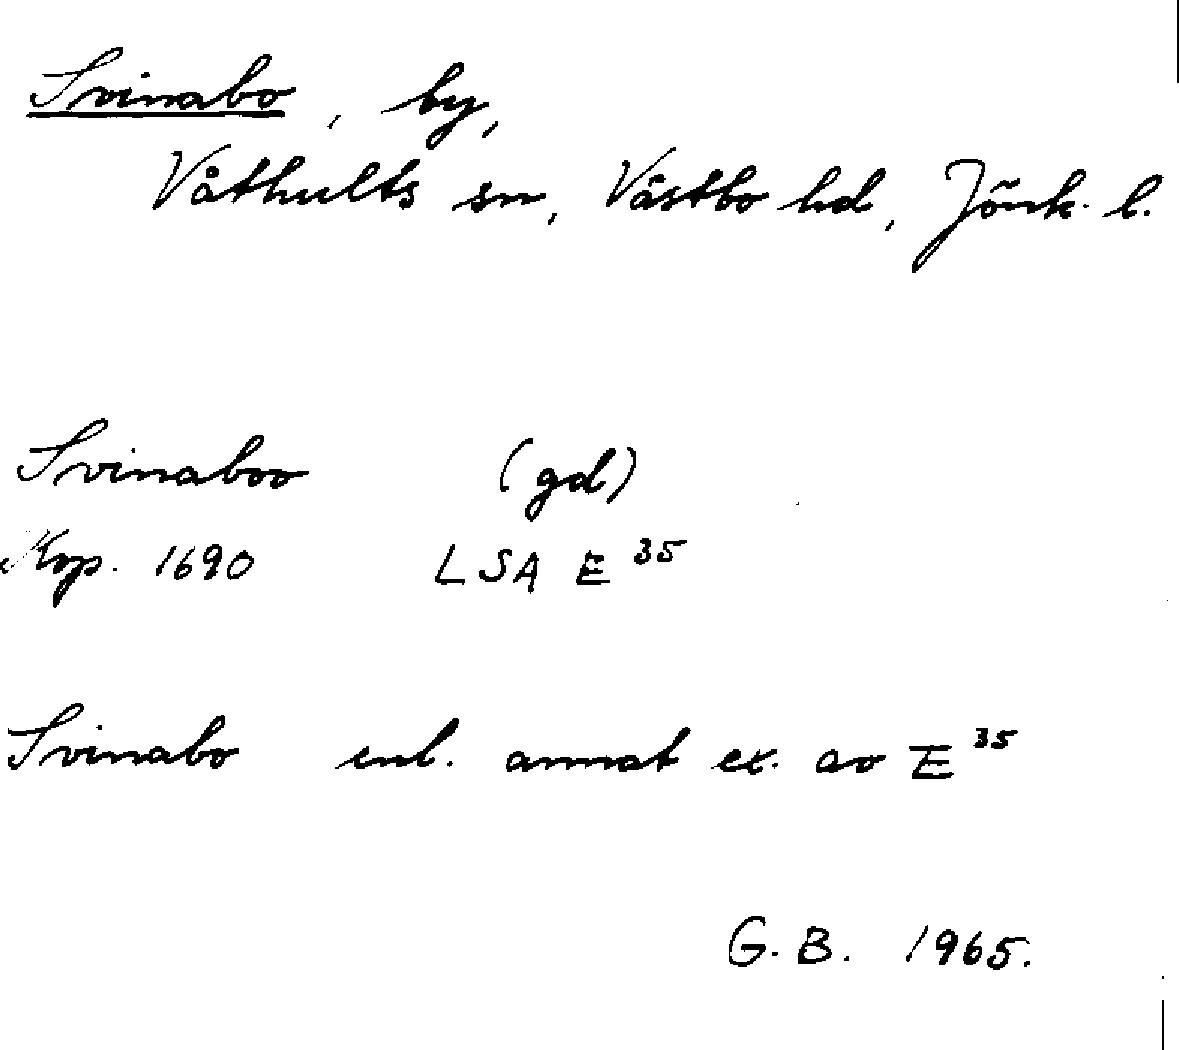 Svinabo, by,
Våthults sn, Västbo hd, Jönk. l.
Svinaboo (gd)
Kop. 1690 LSA E 35
Svinabo enl. annat ex. av E 35
G. B. 1965.